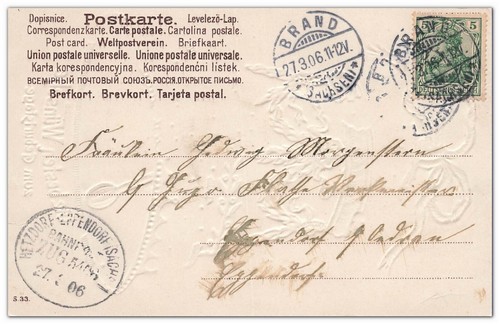 Dopisnice. Postkarte. Levelező-Lap.
Correspondenzkarte. Carte postale. Cartolina postale.
Post card. Weltpostverein. Briefkaart.
Union postale universelle. Unione postale universale.
Karta korespondencyjna. Korespondenční listek.
ВСЕМІРНЫЙ ПОЧТОВЫЙ СОЮЗЪ. РОССІЯ. ОТКРЫТОЕ ПИСЬМО.
Brefkort. Brevkort. Tarjeta postal.
BRAND
27.3.06. 11-12V.
(SACHSEN)
5
Fräulein Hedwig Morgenstern
Hugo
Eppendorf
EPPENDORF (SACHS)
BAHNPOST
ZUG
27. 06
S. 33.